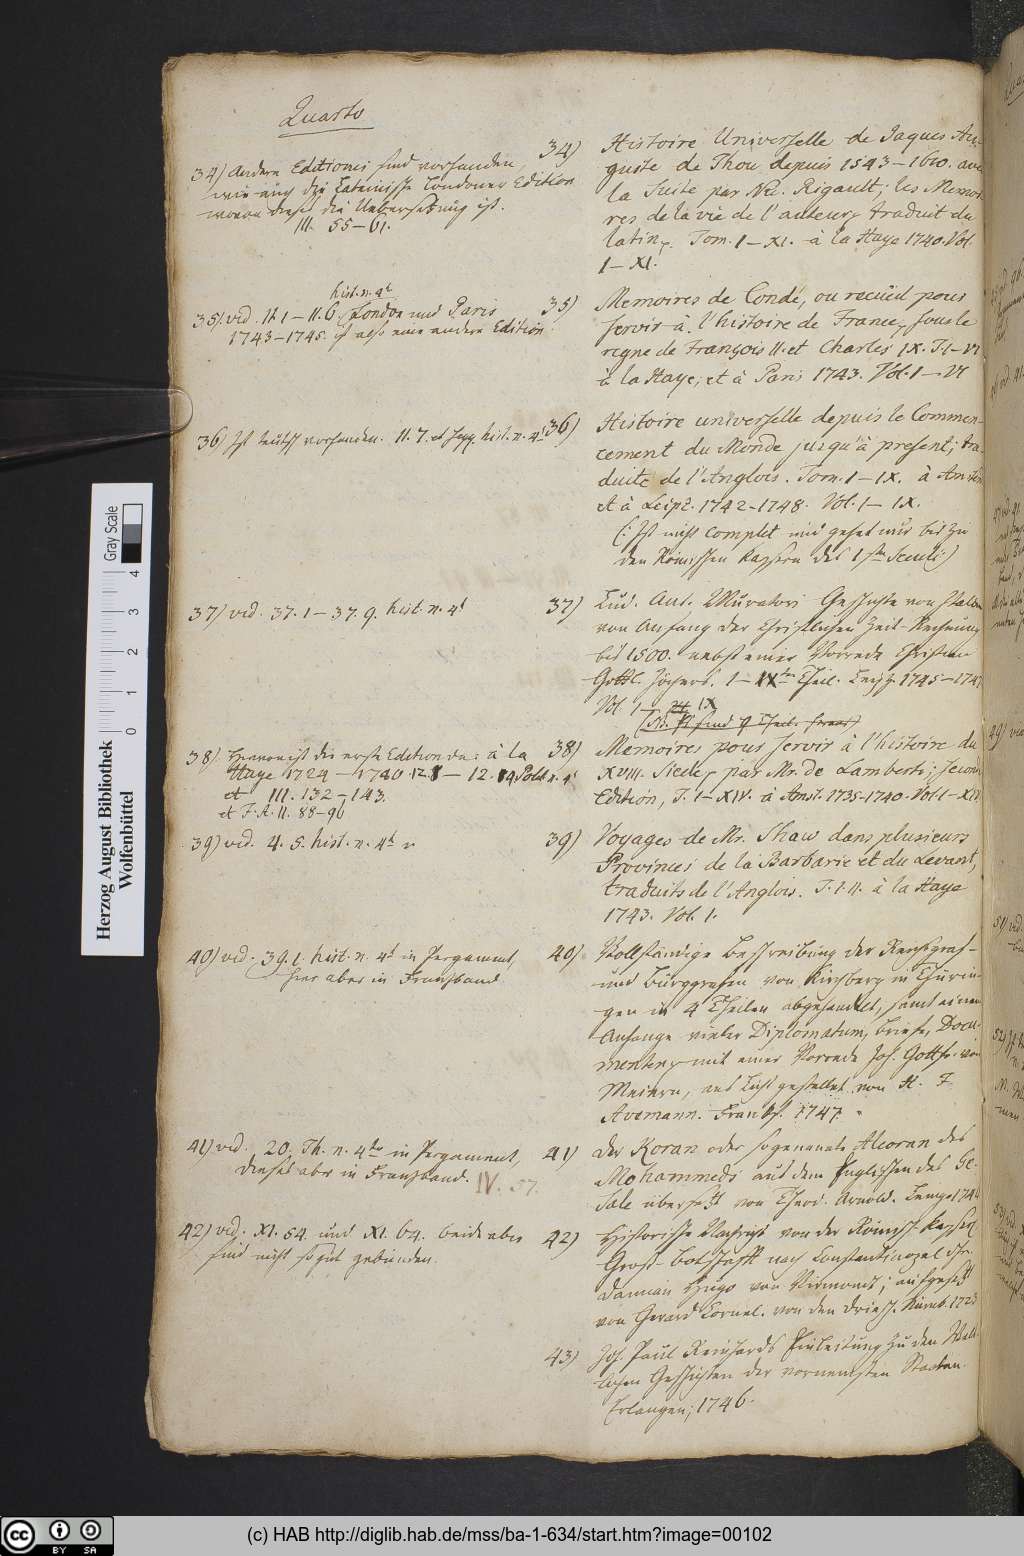 Quarto
34) Andere Editiones sind vorhanden,
wie auch die Lateinische Londoner Edition
wovon dieses die Uebersetzung ist.
III. 55–61.
34) Histoire Universelle de Jaques Au-
guste de Thou depuis 1543–1610. avec
la Suite par Nic. Rigault; les Memoi-
res de la vie de l'auteur, traduit du
latin, Tom. I–XI. à la Haye 1740. Vol.
I–XI.
hist. n. 4t
35) vid. 11.1–11.6. London und Paris
1743–1745. ist also eine andere Edition.
35) Memoires de Condé, ou recüeil pour
servir à l'histoire de France, sous le
regne de François II. et Charles IX. T. I–VI
à la Haye, et à Paris 1743. Vol. I–VI
36) Ist teutsch vorhanden. 11. 7. et seqq. hist. n. 4t
36) Histoire universelle depuis le Commen-
cement du Monde jusqu'à present; tra-
duite de l'Anglois. Tom. I–IX. à Amst.
et à Leipz. 1742–1748. Vol. I–IX.
(: Ist nicht complet und gehet nur bis zu
den Römischen Kaysern des 1sten Seculi:)
37) vid. 37.1–37.9. hist. n. 4t
37) Lud. Ant. Muratori Geschichte von Italien
von Anfang der Christlichen Zeit-Rechnung
bis 1500. nebst einer Vorrede Christian
Gottl. Jöchers. 1–IXter Theil. Leipz. 1745–1747
Vol. I– IX
38) Hievon ist die erste Edition da: à la
Haye 1724–1740 12.1–12.14 Polit. n. 4t
et III. 132–143.
et F. A. II. 88–96
38) Memoires pour servir à l'histoire du
XVIII. Siecle, par Mr. de Lamberti; second
Edition, T. I–XIV. à Amst. 1735–1740. Vol. I–XIV
39) vid. 4. 5. hist. n. 4t
39) Voyages de Mr. Shaw dans plusieurs
Provinces de la Barbarie et du Levant,
traduits de l'Anglois. T. I. II. à la Haye
1743. Vol. 1.
40) vid. 39.1. hist. n. 4t in Pergament,
hier aber in Franzband
40) Vollständige Beschreibung der Reichsgraf-
und Burggrafen von Kirchberg in Thürin-
gen in 4 Theilen abgehandelt, samt einem
Anhange vieler Diplomatum, Briefe, Docu-
menten, mit einer Vorrede Joh. Gottfr. von
Meiern, ans Licht gestellet von H. F.
Avemann. Frankf. 1747.
41) vid. 20. Th. n. 4to in Pergament,
dieses aber in Franzband.
IV. 57.
41) Der Koran oder sogenannte Alcoran des
Mohammeds aus dem Englischen des Ge.
Sale übersetzt von Theod. Arnold. Lemgo 1746
42) vid. XI. 54. und XI. 64. beide aber
sind nicht so gut gebunden.
42) Historische Nachricht von der Römisch Kayserl.
Groß-Botschafft nach Constantinopel Gr.
Damian Hugo von Virmondt; aufgesetzt
von Gerard Cornel. von den Driesch. Nürnb. 1723
43) Joh. Paul Reinhards Einleitung zu den Welt-
lichen Geschichten der vornemsten Staaten.
Erlangen, 1746.
Gray Scale
0 1 2 3 4
Herzog August Bibliothek
Wolfenbüttel
cc BY SA
(c) HAB http://diglib.hab.de/mss/ba-1-634/start.htm?image=00102